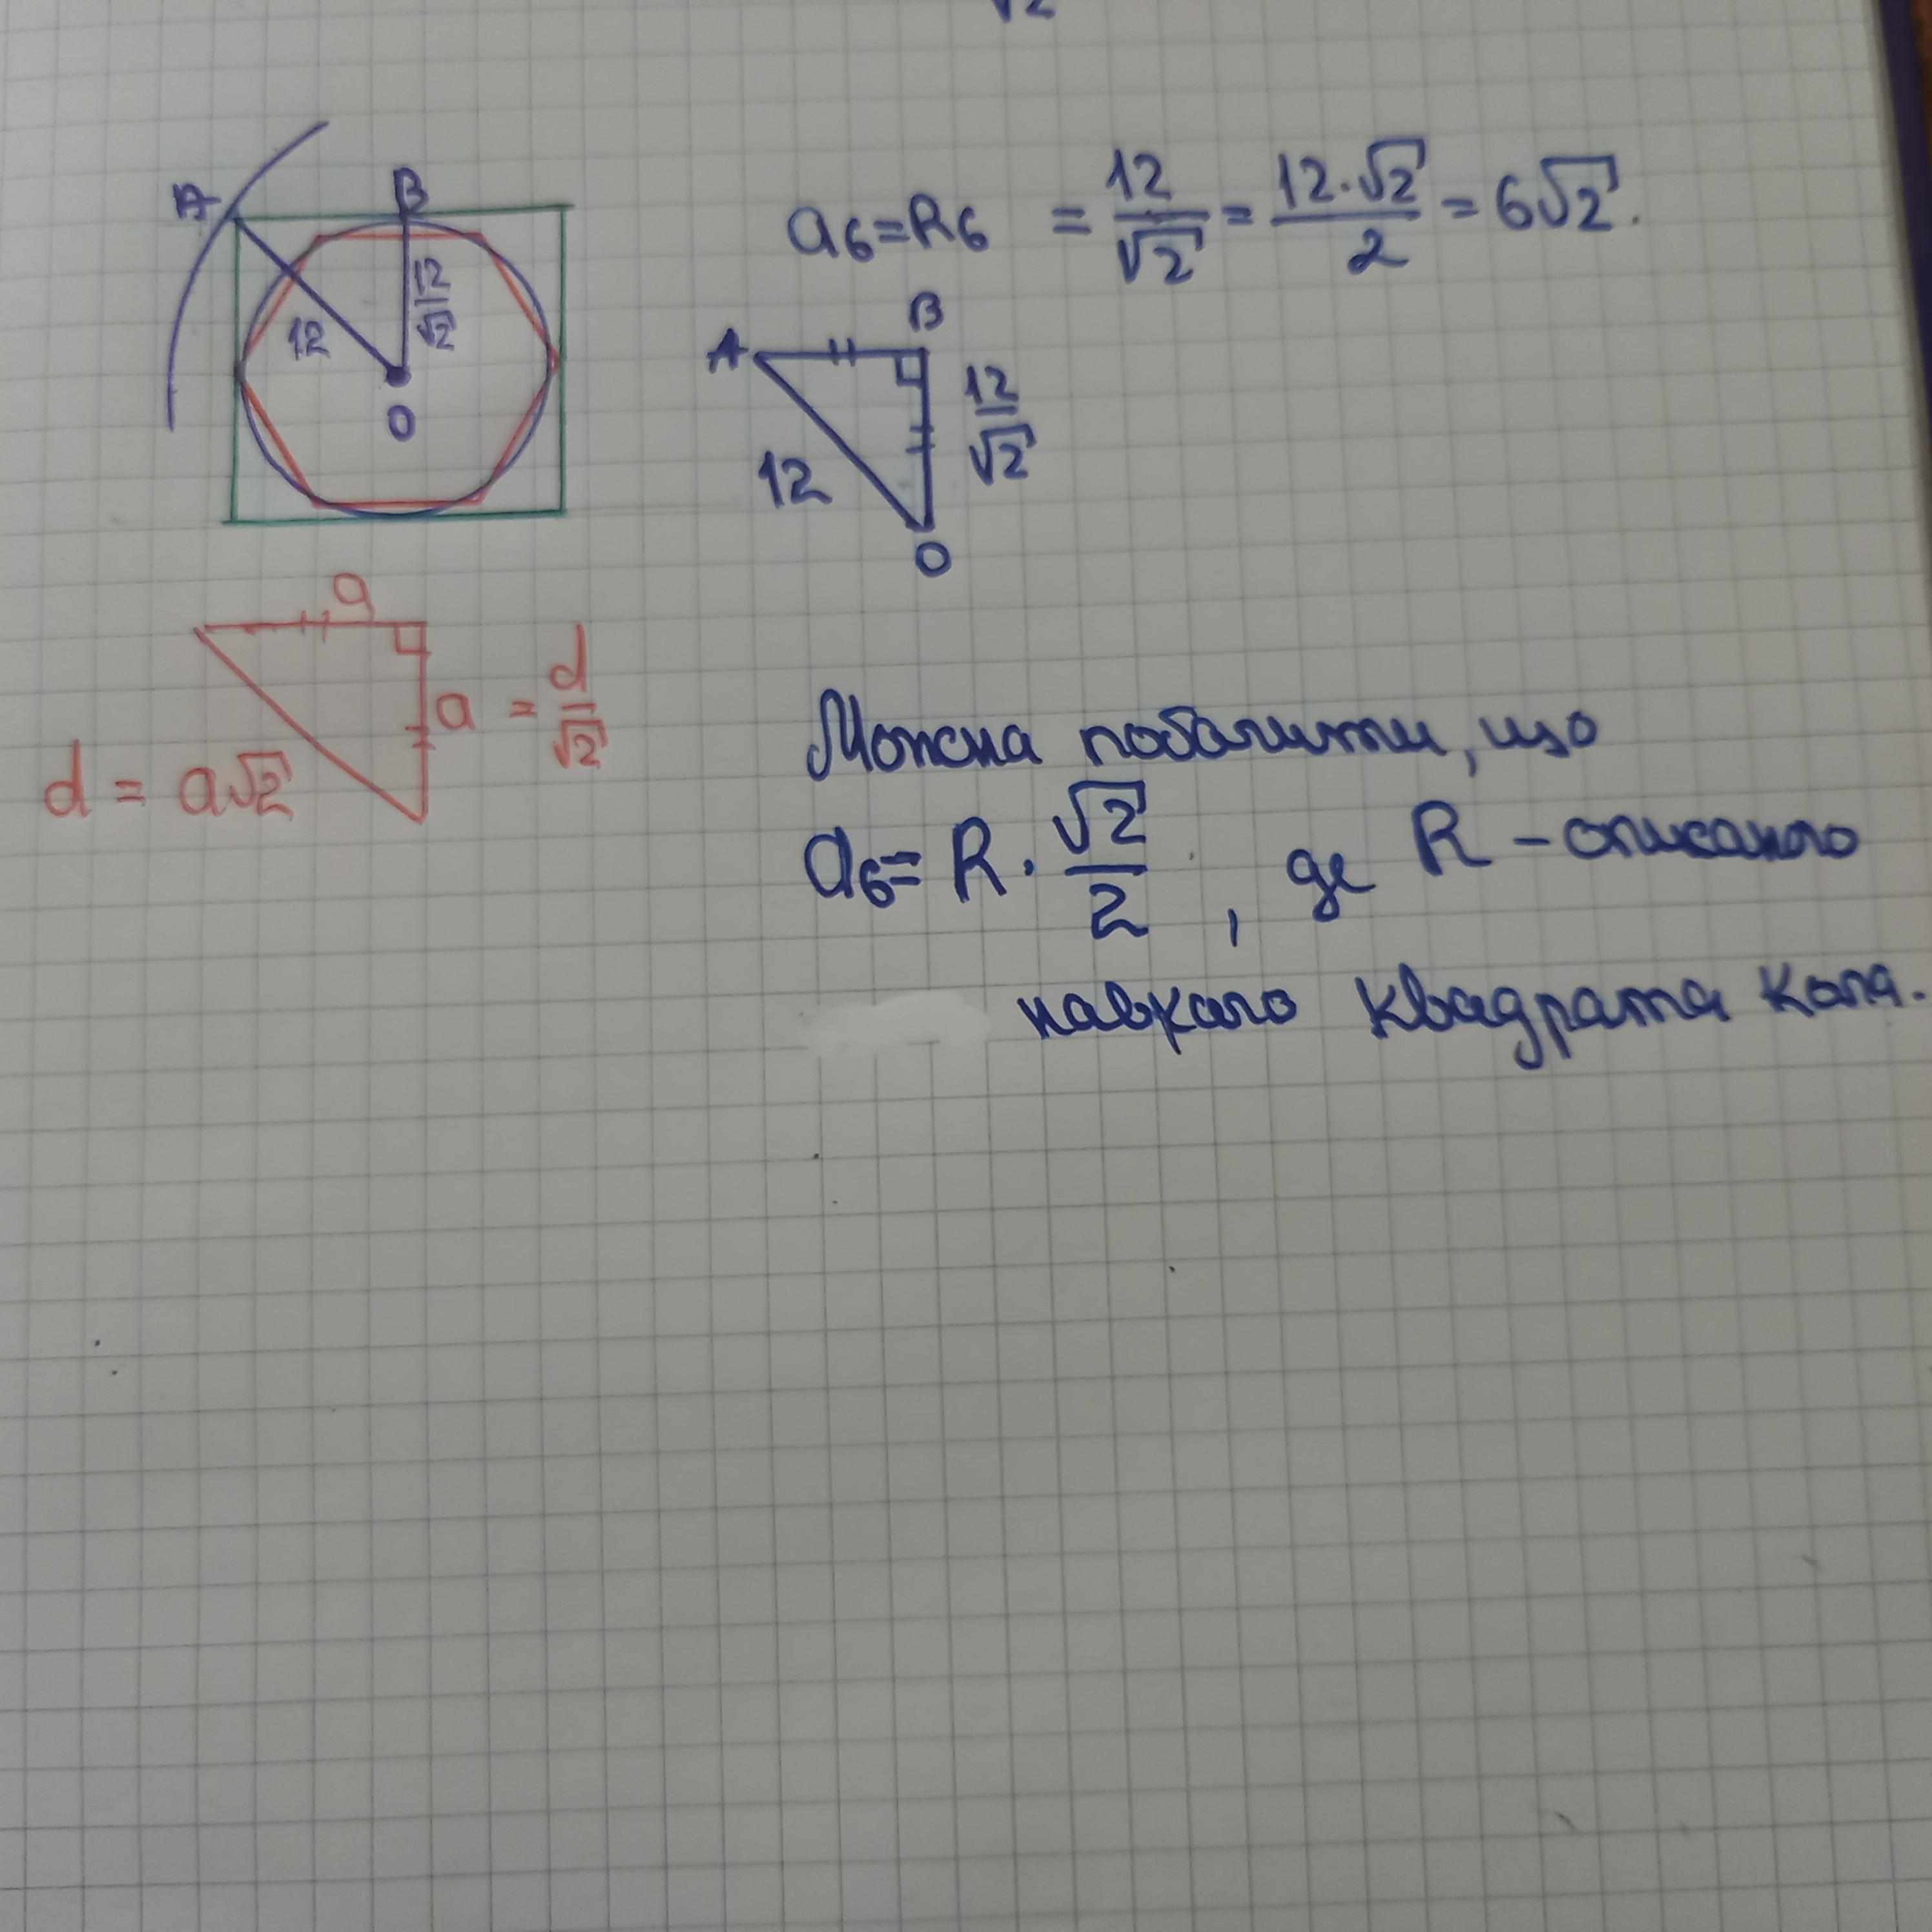 √2
A B
12/√2
12
O
a₆=R₆ = 12/√2 = 12·√2/2 = 6√2.
A B
12/√2
12
O
a
a = d/√2
d = a√2
Можна побачити, що
a₆= R · √2/2 , де R – описаного
навколо квадрата кола.